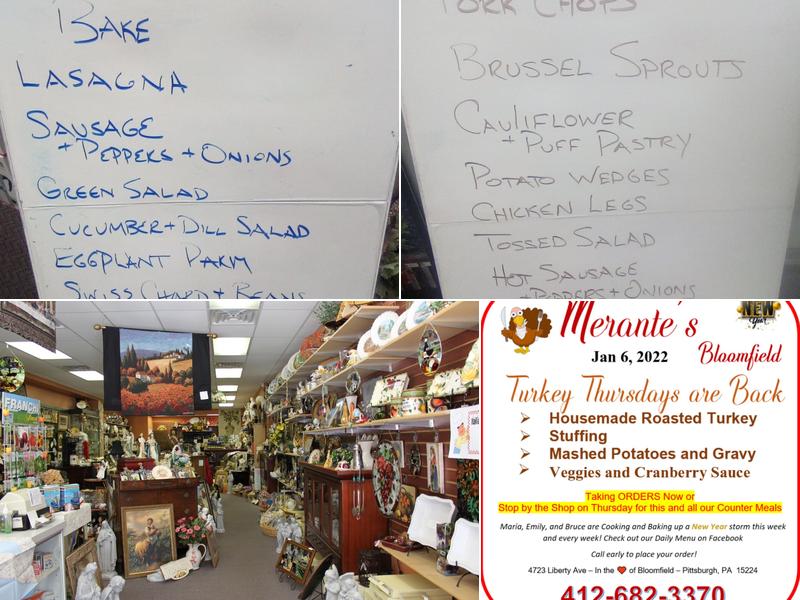 BAKE
LASAGNA
SAUSAGE
+ PEPPERS + ONIONS
GREEN SALAD
CUCUMBER + DILL SALAD
EGGPLANT PARM
SWISS CHARD + BEANS
PORK CHOPS
BRUSSEL SPROUTS
CAULIFLOWER
+ PUFF PASTRY
POTATO WEDGES
CHICKEN LEGS
TOSSED SALAD
HOT SAUSAGE
+ PEPPERS + ONIONS
FRANCHI
Merante's
NEW
Year
Jan 6, 2022
Bloomfield
Turkey Thursdays are Back
Housemade Roasted Turkey
Stuffing
Mashed Potatoes and Gravy
Veggies and Cranberry Sauce
Taking ORDERS Now or
Stop by the Shop on Thursday for this and all our Counter Meals
Maria, Emily, and Bruce are Cooking and Baking up a New Year storm this week
and every week! Check out our Daily Menu on Facebook
Call early to place your order!
4723 Liberty Ave – In the ❤ of Bloomfield – Pittsburgh, PA 15224
412-682-3370